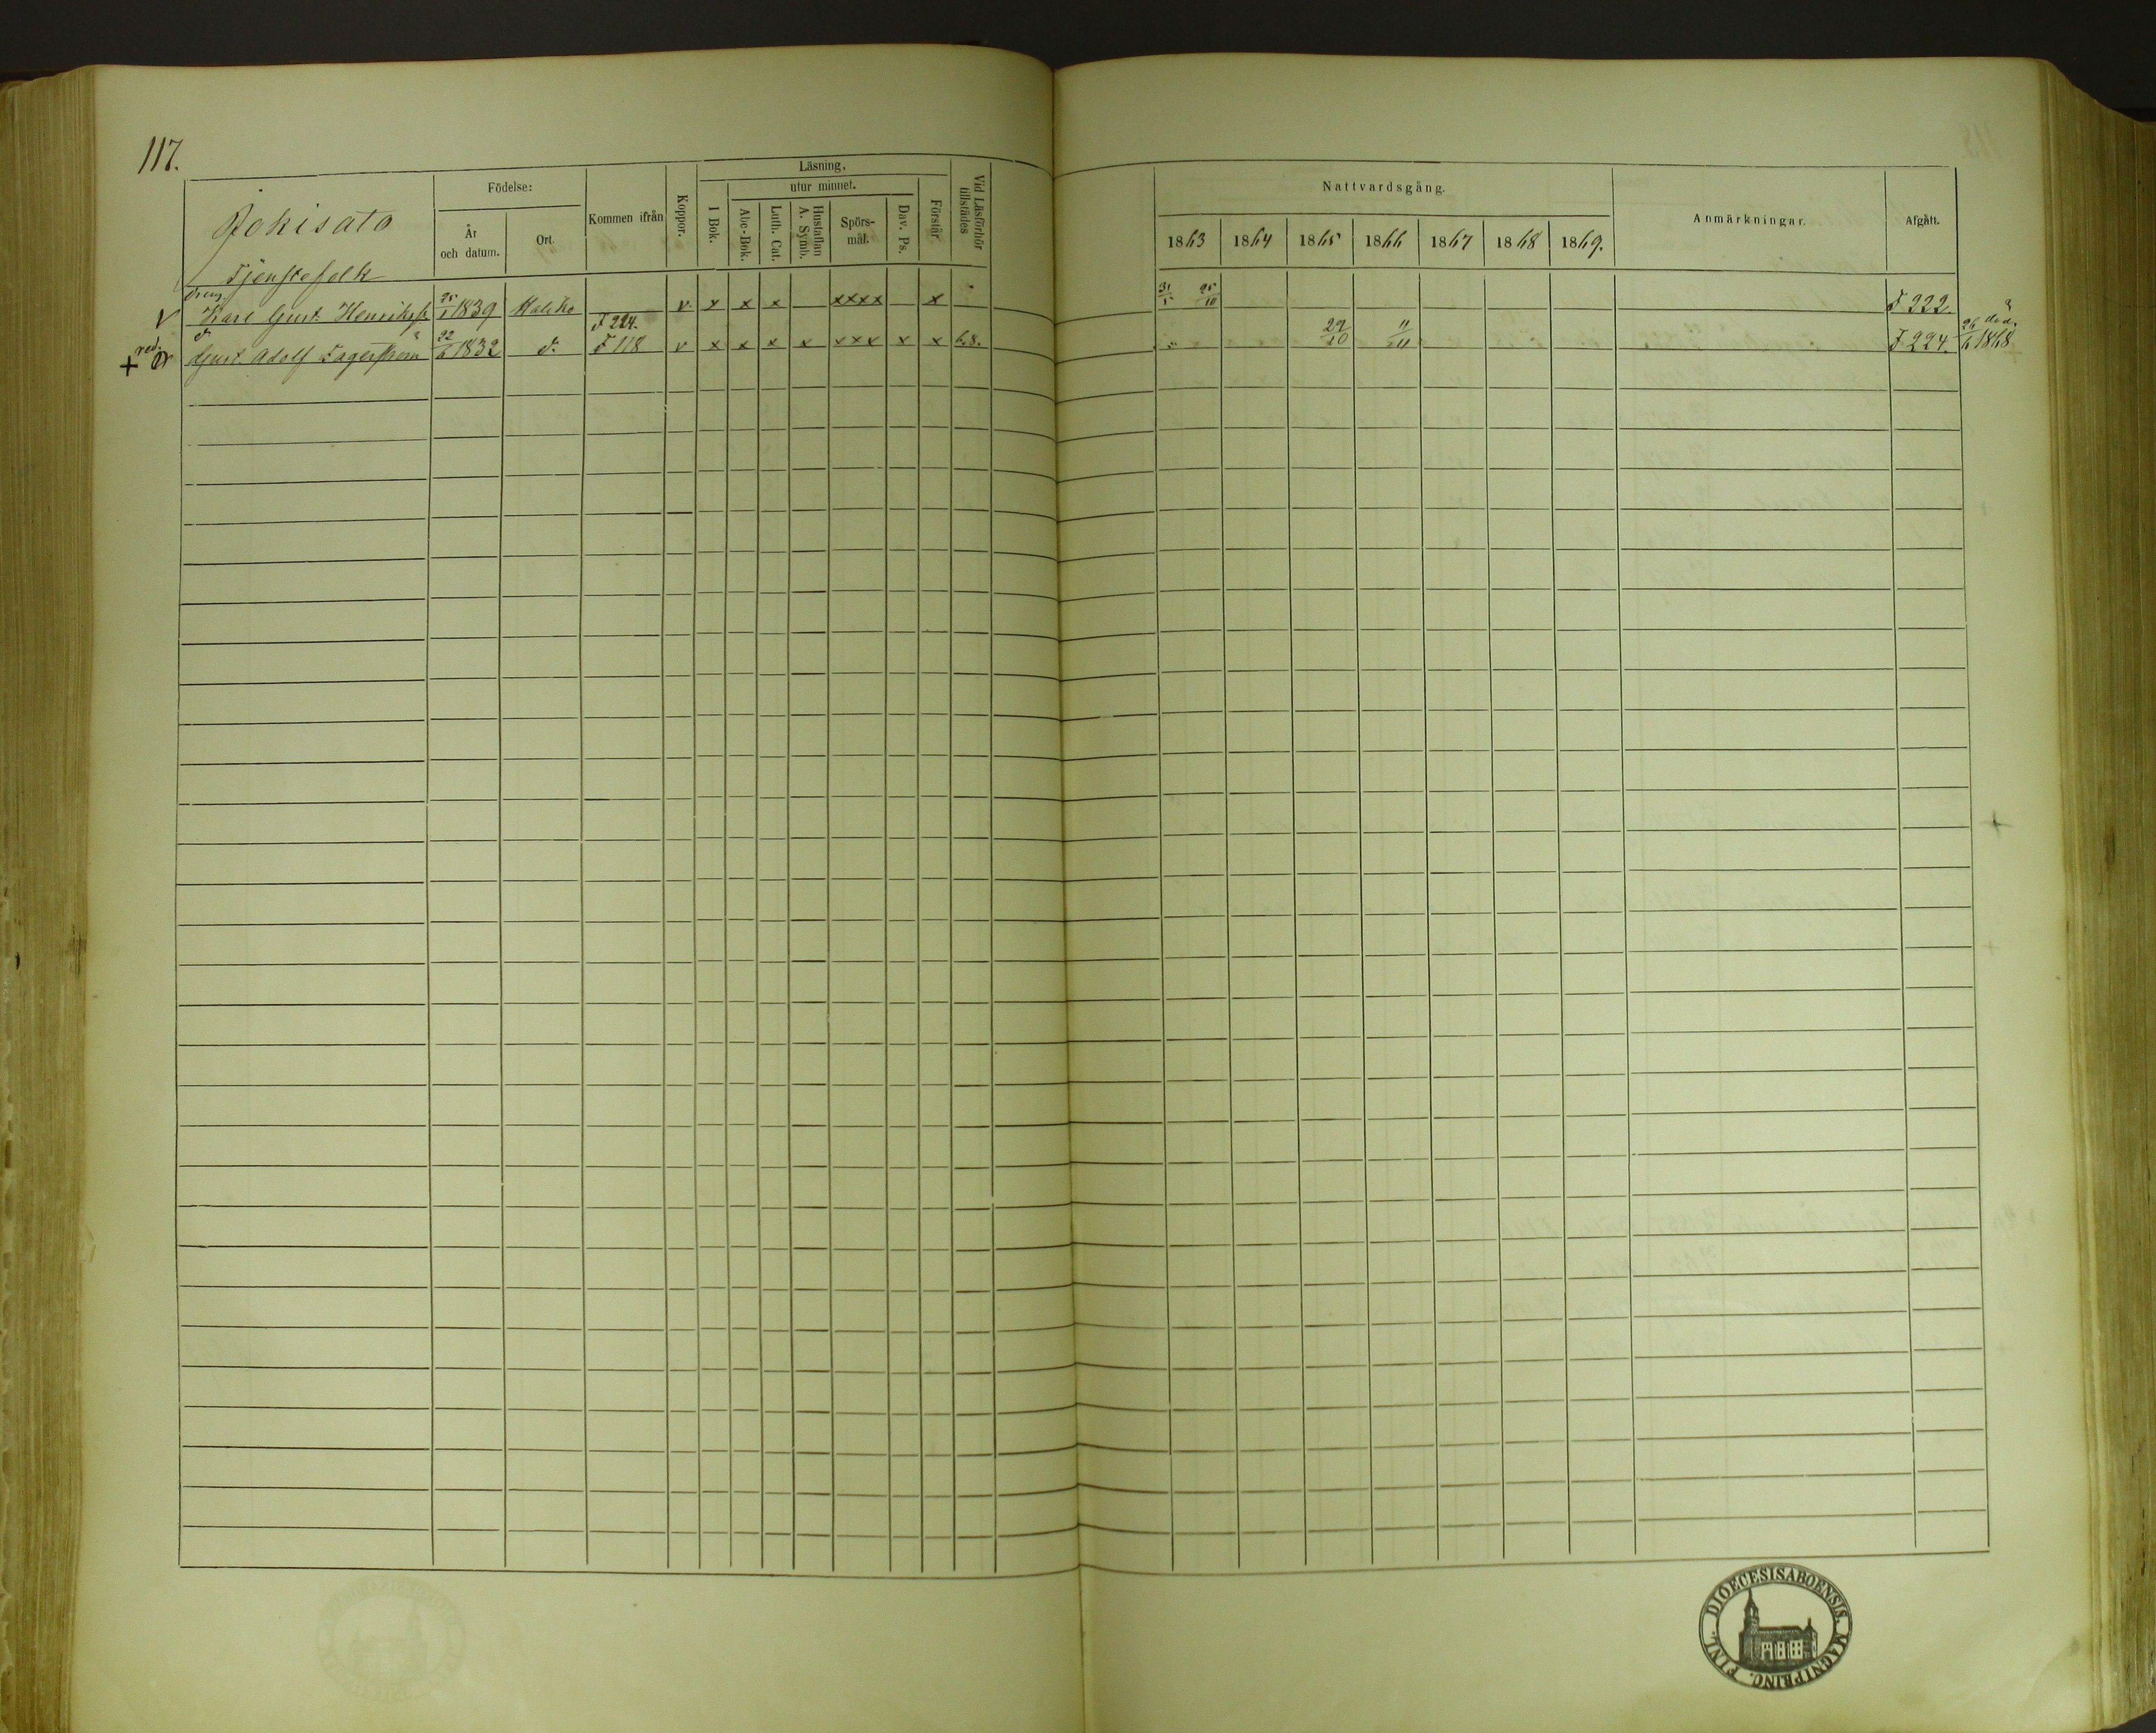 117.
Jokisato
Tjenstefolk
Födelse:
År och datum.
Ort.
Kommen ifrån
Koppor.
Läsning,
I Bok.
utur minnet.
Abc-Bok.
Luth. Cat.
Hustaflan A. Symb.
Spörs-mål.
Dav. Ps.
Förstår.
Vid Läsförhör tillstädes
Nattvardsgång.
1863 1864 1865 1866 1867 1868 1869.
Anmärkningar.
Afgått.
Dreng
v Karl Gust. Henriksf. 25/1 1839 Halikko v. x x x xxxx x 31/5 25/10 F 222.
F 224.
+ Gust. Adolf Fagerström 22/6 1832 d:o F 118 v x x x x xxx x x 6.8. 29/10 11/11 F 224. 26/6 1868 död.
DIOECESIS ABOENSIS. MAGNI PRINC. FINL.